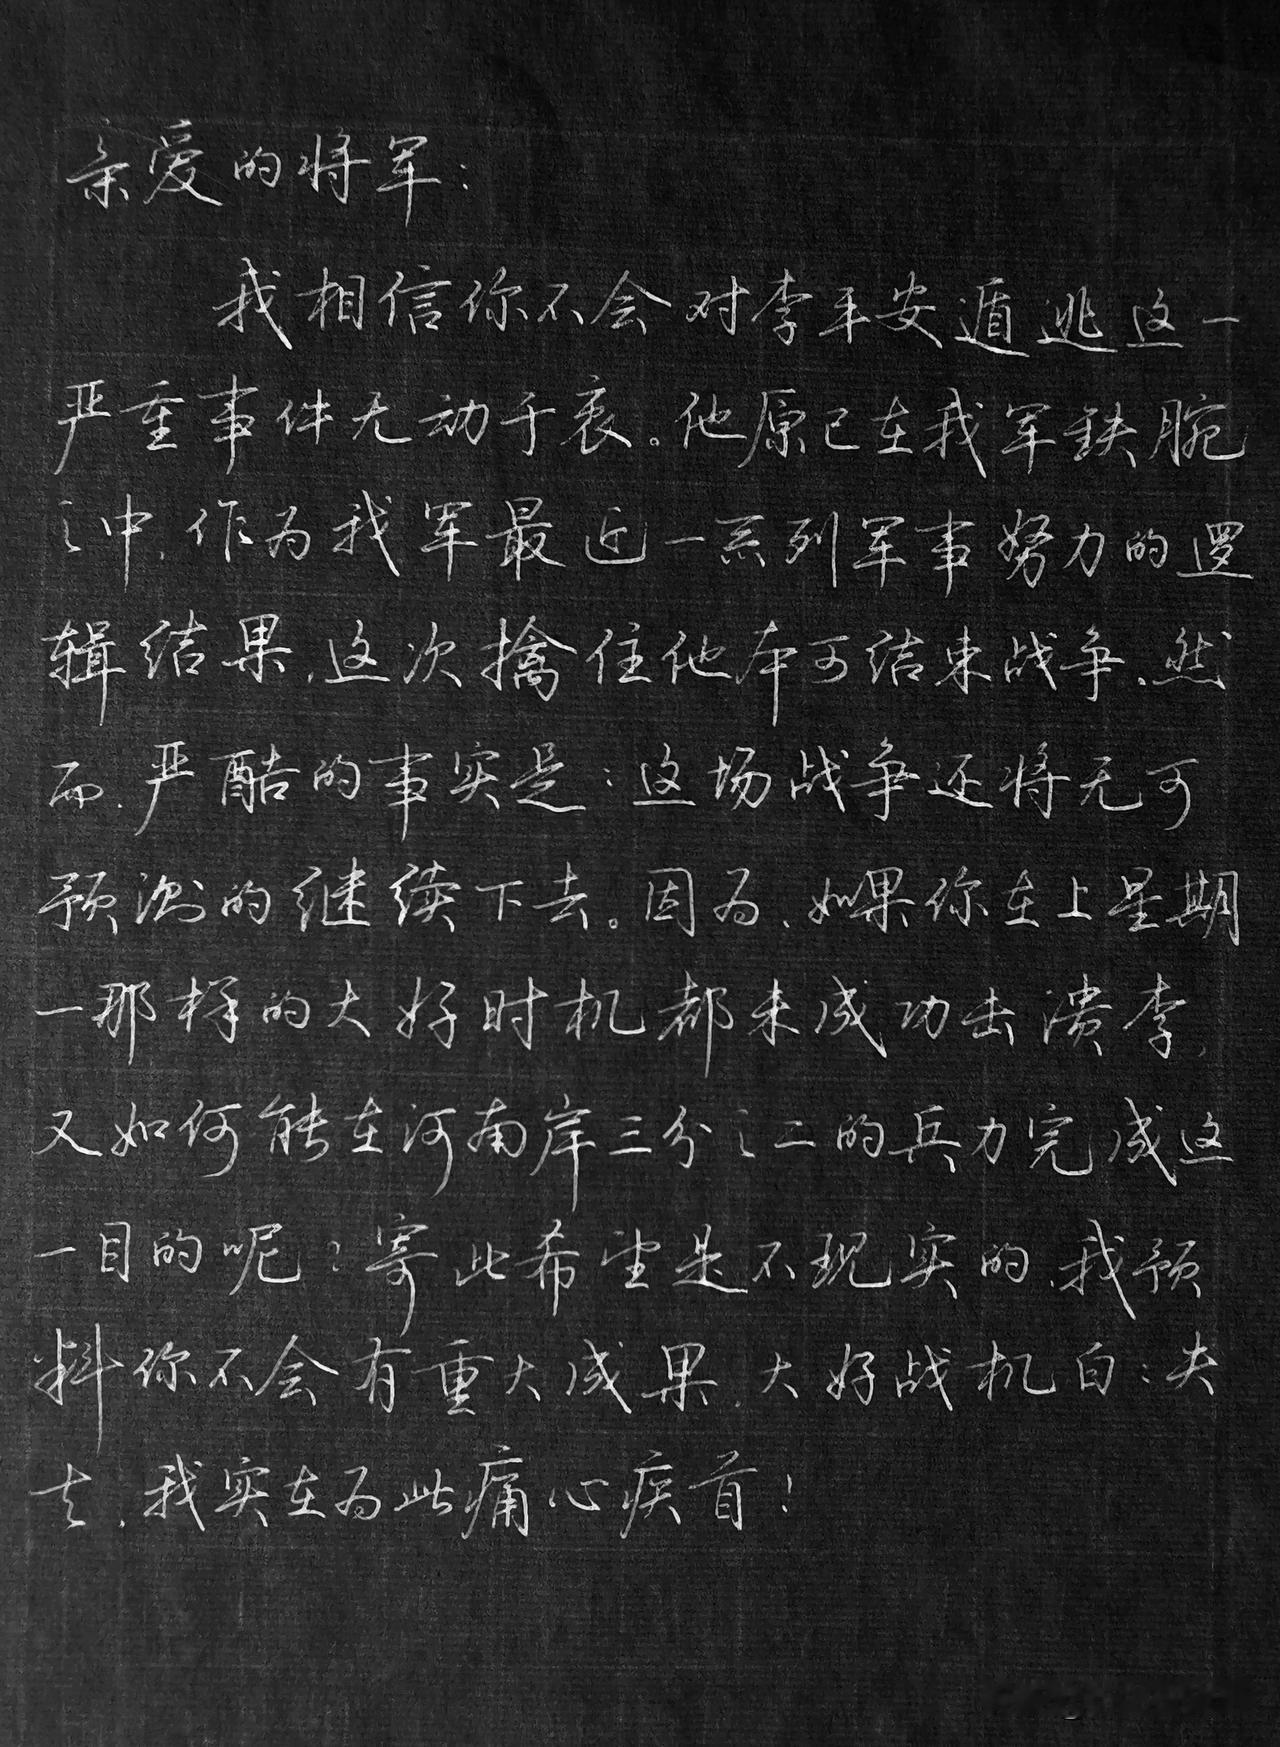 亲爱的将军：
我相信你不会对李平安遁逃这一
严重事件无动于衷。他原已在我军铁腕
之中，作为我军最近一系列军事努力的逻
辑结果，这次擒住他本可结束战争。然
而，严酷的事实是：这场战争还将无可
预测的继续下去。因为，如果你在上星期
一那样的大好时机都未成功击溃李，
又如何能在河南岸三分之二的兵力完成这
一目的呢？寄此希望是不现实的，我预
料你不会有重大成果，大好战机白：失
去，我实在为此痛心疾首！